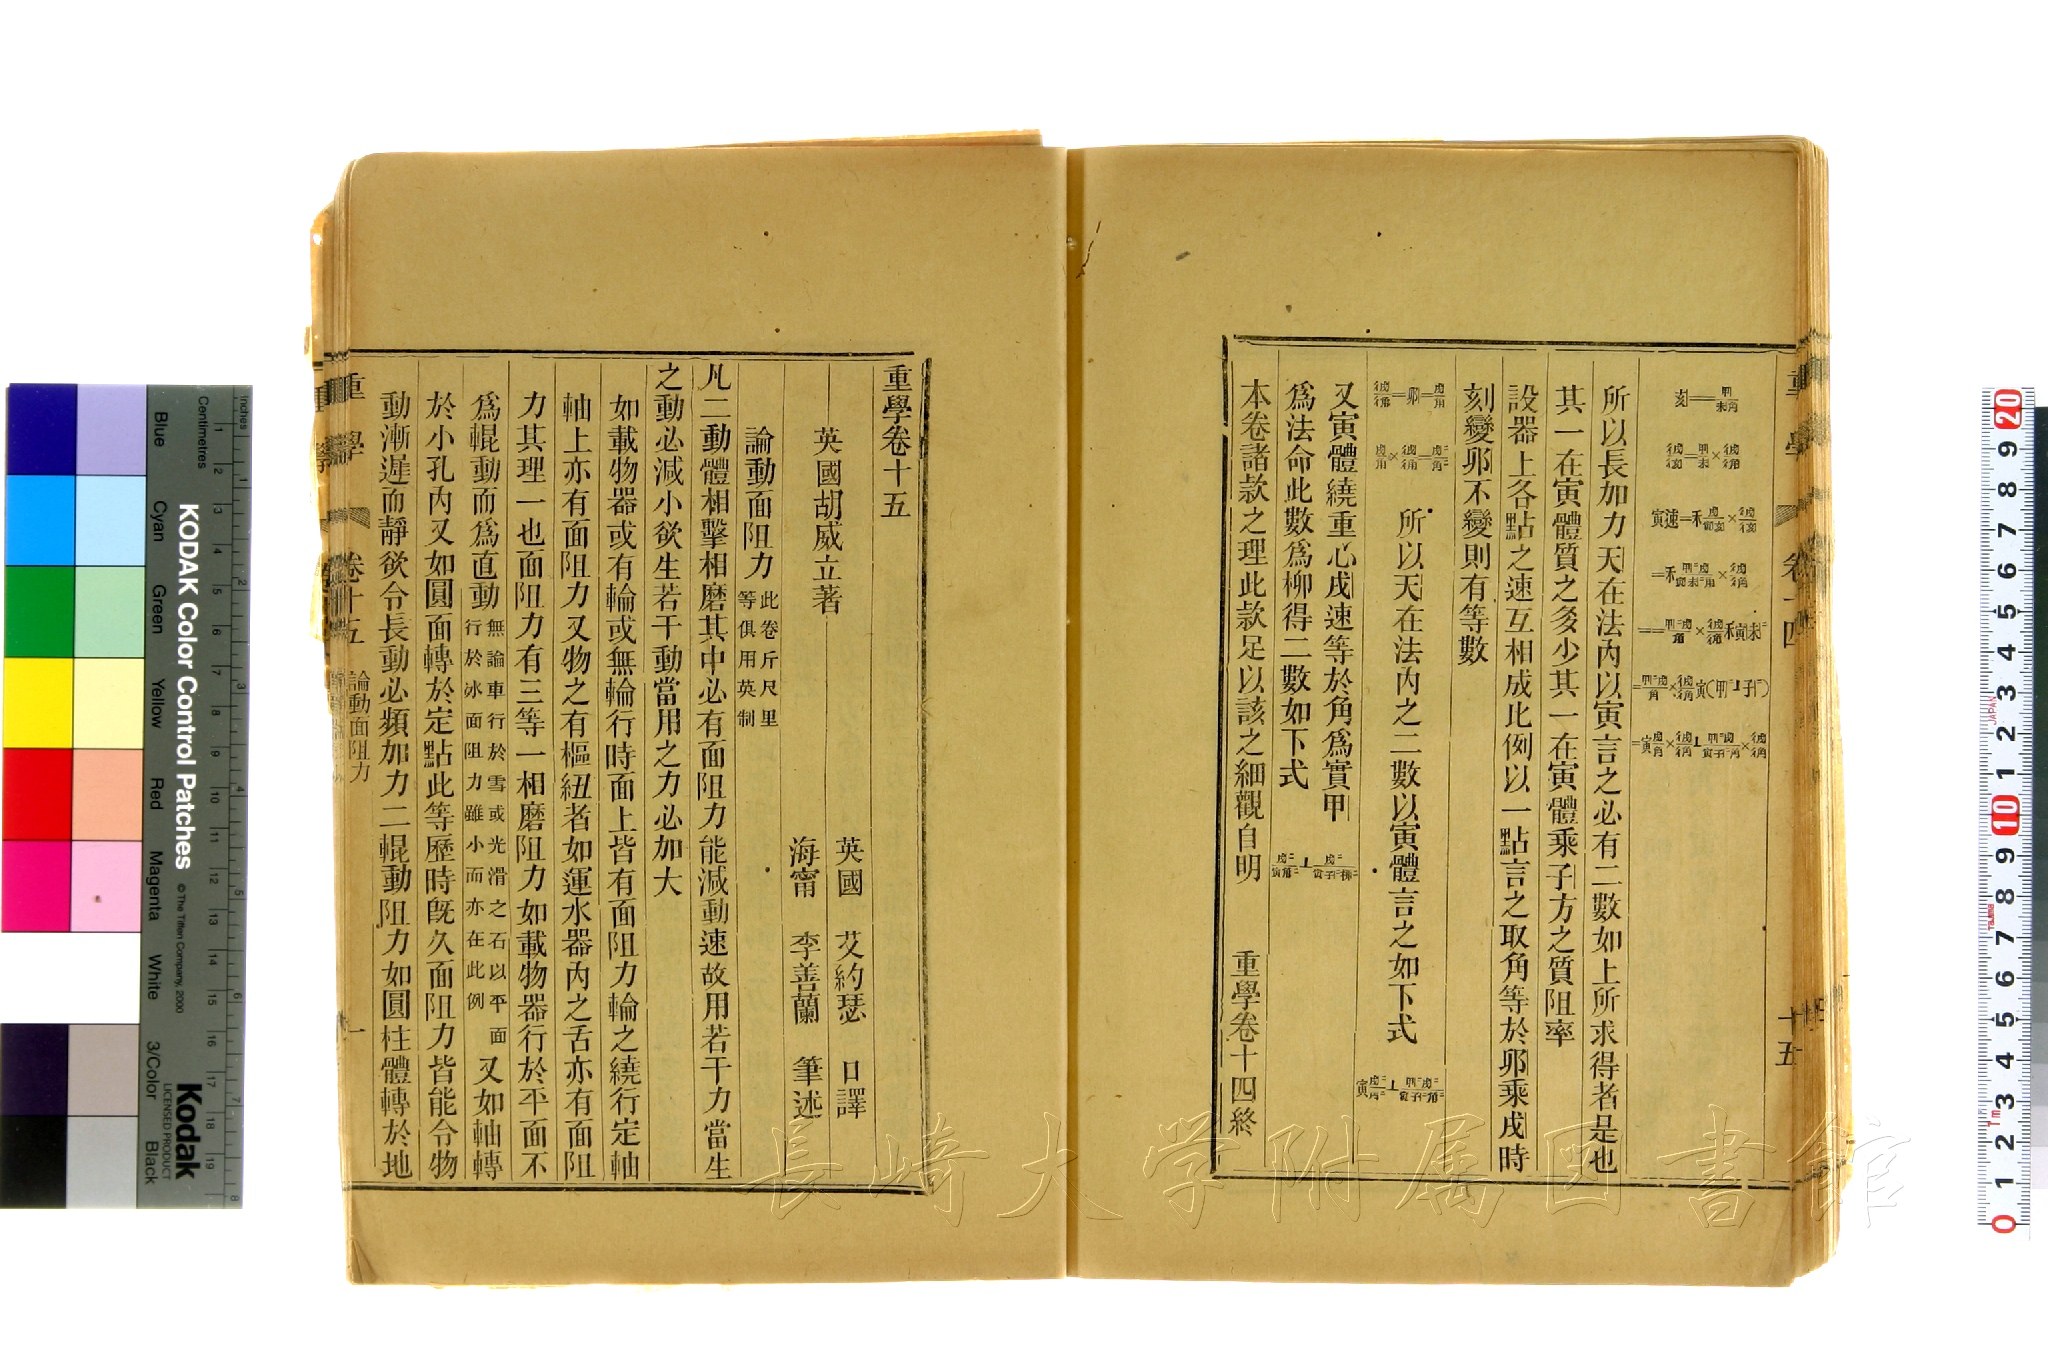 所以長加力天在法內以寅言之必有二數如上所求得者是也
其一在寅體質之多少其一在寅體乘子方之質阻率
設器上各點之速互相成此例以一點言之取角等於卯乘戌時
刻變卯不變則有等數
所以天在法內之二數以寅體言之如下式
又寅體繞重心戌速等於角爲實甲
爲法命此數爲柳得二數如下式
本卷諸款之理此款足以該之細觀自明　重學卷十四終
十五
重學卷十五
英國胡威立著
英國　艾約瑟　口譯
海甯　李善蘭　筆述
論動面阻力 此卷斤尺里等俱用英制
凡二動體相擊相磨其中必有面阻力能減動速故用若干力當生
之動必減小欲生若干動當用之力必加大
如載物器或有輪或無輪行時面上皆有面阻力輪之繞行定軸
軸上亦有面阻力又物之有樞紐者如運水器內之舌亦有面阻
力其理一也面阻力有三等一相磨阻力如載物器行於平面不
爲輥動而爲直動無論車行於雪或光滑之石以平面行於冰面阻力雖小而亦在此例又如軸轉
於小孔內又如圓面轉於定點此等歷時旣久面阻力皆能令物
動漸遲而靜欲令長動必頻加力二輥動阻力如圓柱體轉於地
重學　卷十五　論動面阻力　一
長崎大学附属図書館
KODAK Color Control Patches
© The Tiffen Company, 2000
Kodak
LICENSED PRODUCT
Blue Cyan Green Yellow Red Magenta White 3/Color Black
Centimetres
Inches
JAPAN